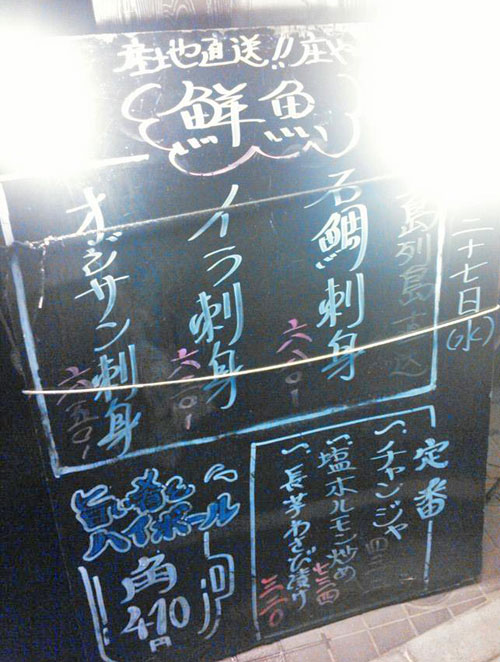 産地直送!!庄や
鮮魚
二十七日(水)
島列島直送
石鯛刺身 六八〇ー
イラ刺身 六八〇ー
オジサン刺身 六五〇ー
定番
一、チャンジャ
一、塩ホルモン炒め 七三四
一、長芋わさび漬け 三二〇
旨い肴と
ハイボール
角
410
円